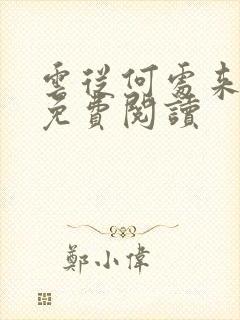 雲從何處來
免費閱讀
鄭小偉